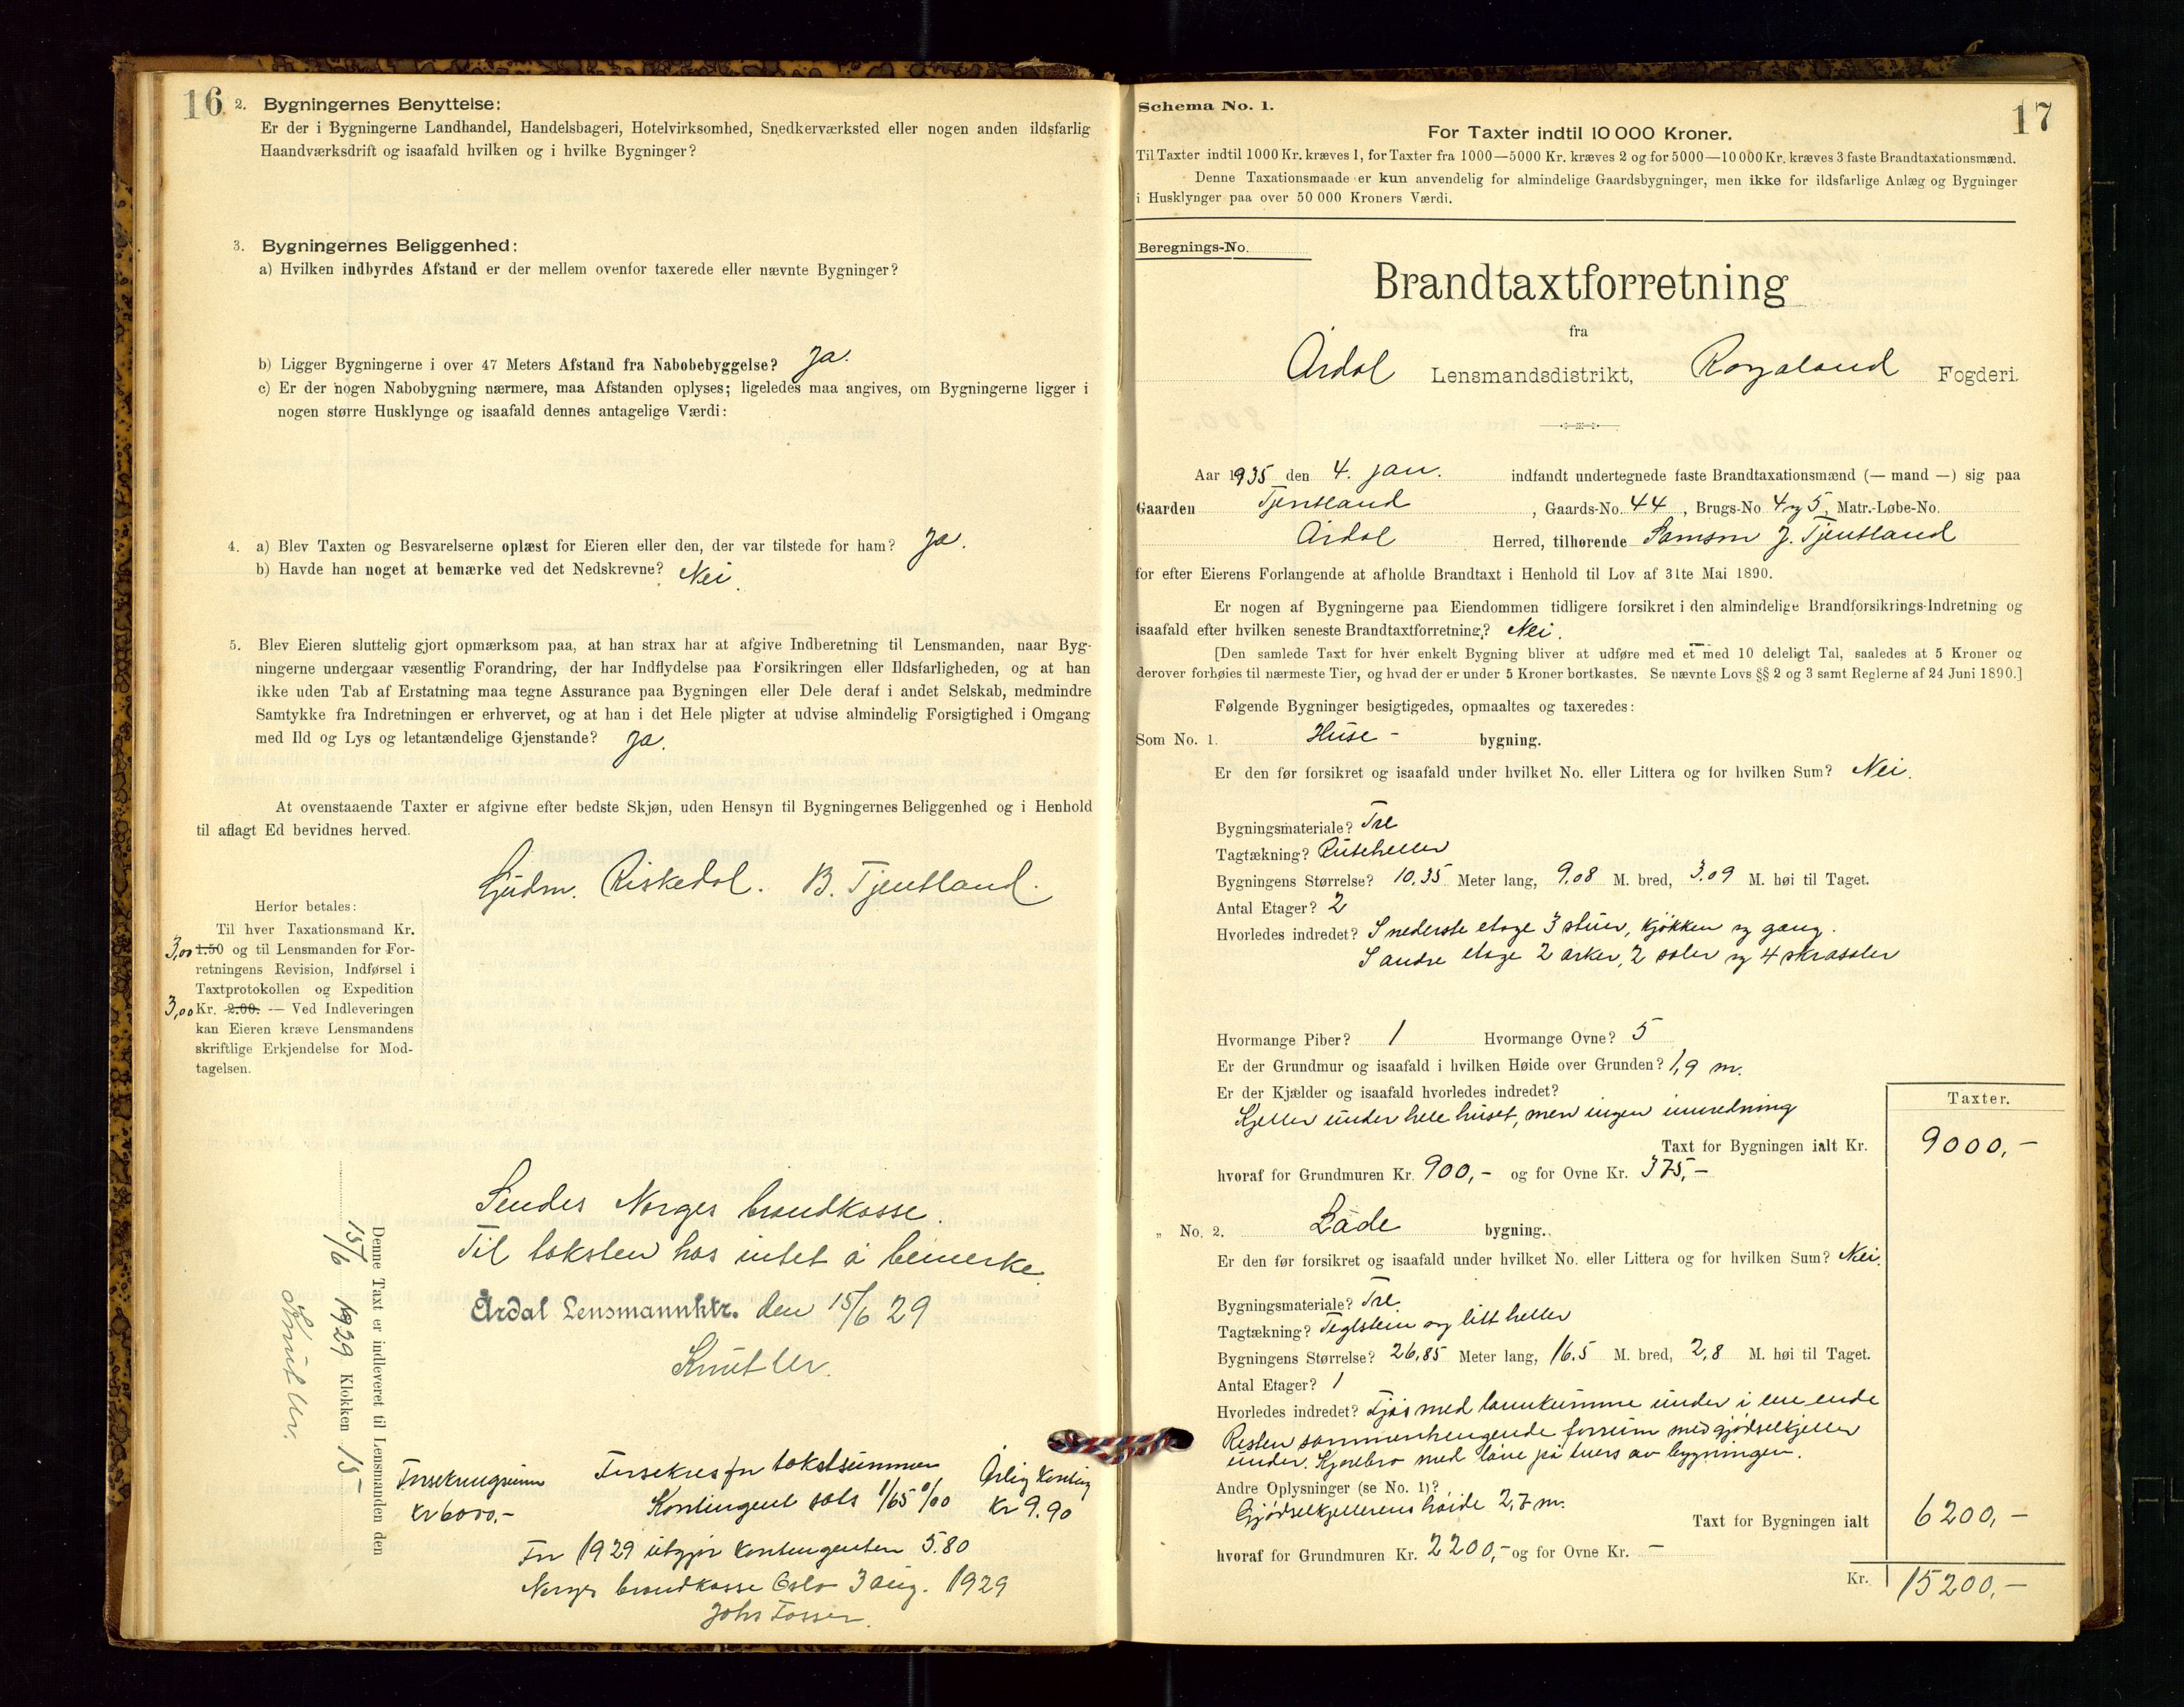 16
2. Bygningernes Benyttelse:
Er der i Bygningerne Landhandel, Handelsbageri, Hotelvirksomhed, Snedkerværksted eller nogen anden ildsfarlig
Haandværksdrift og isaafald hvilken og i hvilke Bygninger?
3. Bygningernes Beliggenhed:
a) Hvilken indbyrdes Afstand er der mellem ovenfor taxerede eller nævnte Bygninger?
b) Ligger Bygningerne i over 47 Meters Afstand fra Nabobebyggelse? Ja.
c) Er der nogen Nabobygning nærmere, maa Afstanden oplyses; ligeledes maa angives, om Bygningerne ligger i
nogen større Husklynge og isaafald dennes antagelige Værdi:
4. a) Blev Taxten og Besvarelserne oplæst for Eieren eller den, der var tilstede for ham? Ja.
b) Havde han noget at bemærke ved det Nedskrevne? Nei.
5. Blev Eieren sluttelig gjort opmærksom paa, at han strax har at afgive Indberetning til Lensmanden, naar Byg-
ningerne undergaar væsentlig Forandring, der har Indflydelse paa Forsikringen eller Ildsfarligheden, og at han
ikke uden Tab af Erstatning maa tegne Assurance paa Bygningen eller Dele deraf i andet Selskab, medmindre
Samtykke fra Indretningen er erhvervet, og at han i det Hele pligter at udvise almindelig Forsigtighed i Omgang
med Ild og Lys og letantændelige Gjenstande? Ja.
At ovenstaaende Taxter er afgivne efter bedste Skjøn, uden Hensyn til Bygningernes Beliggenhed og i Henhold
til aflagt Ed bevidnes herved.
Gudm. Riskedal. B. Tjentland.
Herfor betales:
Til hver Taxationsmand Kr.
3,00 1.50 og til Lensmanden for For-
retningens Revision, Indførsel i
Taxtprotokollen og Expedition
3,00 Kr. 2.00. — Ved Indleveringen
kan Eieren kræve Lensmandens
skriftlige Erkjendelse for Mod-
tagelsen.
Denne Taxt er indleveret til Lensmanden den
15/6 1929 Klokken 15
Sendes Norges brandkasse.
Til taksten has intet å bemerke.
Årdal Lensmannktr. den 15/6 29
Forsikringssum Forsikres for takstsummen Årlig konting
Kr 6000,- Kontingent sats 1/65 0/00 Kr 9.90
For 1929 utgjør kontingenten 5.80
Norges brandkasse Oslo 3 aug. 1929
17
Schema No. 1.
For Taxter indtil 10 000 Kroner.
Til Taxter indtil 1000 Kr. kræves 1, for Taxter fra 1000—5000 Kr. kræves 2 og for 5000—10 000 Kr. kræves 3 faste Brandtaxationsmænd.
Denne Taxationsmaade er kun anvendelig for almindelige Gaardsbygninger, men ikke for ildsfarlige Anlæg og Bygninger
i Husklynger paa over 50 000 Kroners Værdi.
Beregnings-No.
Brandtaxtforretning
fra
Årdal Lensmandsdistrikt, Rogaland Fogderi.
Aar 1935 den 4. jan. indfandt undertegnede faste Brandtaxationsmænd (— mand —) sig paa
Gaarden Tjentland, Gaards-No. 44, Brugs-No. 4 og 5, Matr.-Løbe-No.
Årdal Herred, tilhørende Samson J. Tjentland
for efter Eierens Forlangende at afholde Brandtaxt i Henhold til Lov af 31te Mai 1890.
Er nogen af Bygningerne paa Eiendommen tidligere forsikret i den almindelige Brandforsikrings-Indretning og
isaafald efter hvilken seneste Brandtaxtforretning? Nei.
[Den samlede Taxt for hver enkelt Bygning bliver at udføre med et med 10 deleligt Tal, saaledes at 5 Kroner og
derover forhøies til nærmeste Tier, og hvad der er under 5 Kroner bortkastes. Se nævnte Lovs §§ 2 og 3 samt Reglerne af 24 Juni 1890.]
Følgende Bygninger besigtigedes, opmaaltes og taxeredes:
Som No. 1. Huse - bygning.
Er den før forsikret og isaafald under hvilket No. eller Littera og for hvilken Sum? Nei.
Bygningsmateriale? Tre
Tagtækning? Rutheller
Bygningens Størrelse? 10,35 Meter lang, 9,08 M. bred, 3,09 M. høi til Taget.
Antal Etager? 2
Hvorledes indredet? I nederste etage 3 stuer, kjøkken og gang.
I andre etage 2 arker, 2 saler og 4 skråsaler
Hvormange Piber? 1 Hvormange Ovne? 5
Er der Grundmur og isaafald i hvilken Høide over Grunden? 1,9 m.
Er der Kjælder og isaafald hvorledes indredet?
Kjeller under hele huset, men ingen innredning
Taxter.
Taxt for Bygningen ialt Kr. 9000,-
hvoraf for Grundmuren Kr. 900,- og for Ovne Kr. 375,-
„ No. 2. Løde bygning.
Er den før forsikret og isaafald under hvilket No. eller Littera og for hvilken Sum? Nei.
Bygningsmateriale? Tre.
Tagtækning? Teglstein og litt heller
Bygningens Størrelse? 26,85 Meter lang, 16.5 M. bred, 2,8 M. høi til Taget.
Antal Etager? 1
Hvorledes indredet? Fjøs med landkumme under i ene ende
Resten sammenhengende forrum med gjødselkjeller
under. Kjørebro med låve på tvers av bygningen.
Andre Oplysninger (se No. 1)?
Gjødselkjellerens høide 2,7 m.
Taxt for Bygningen ialt 6200,-
hvoraf for Grundmuren Kr. 2200,- og for Ovne Kr. -
Kr. 15200,-